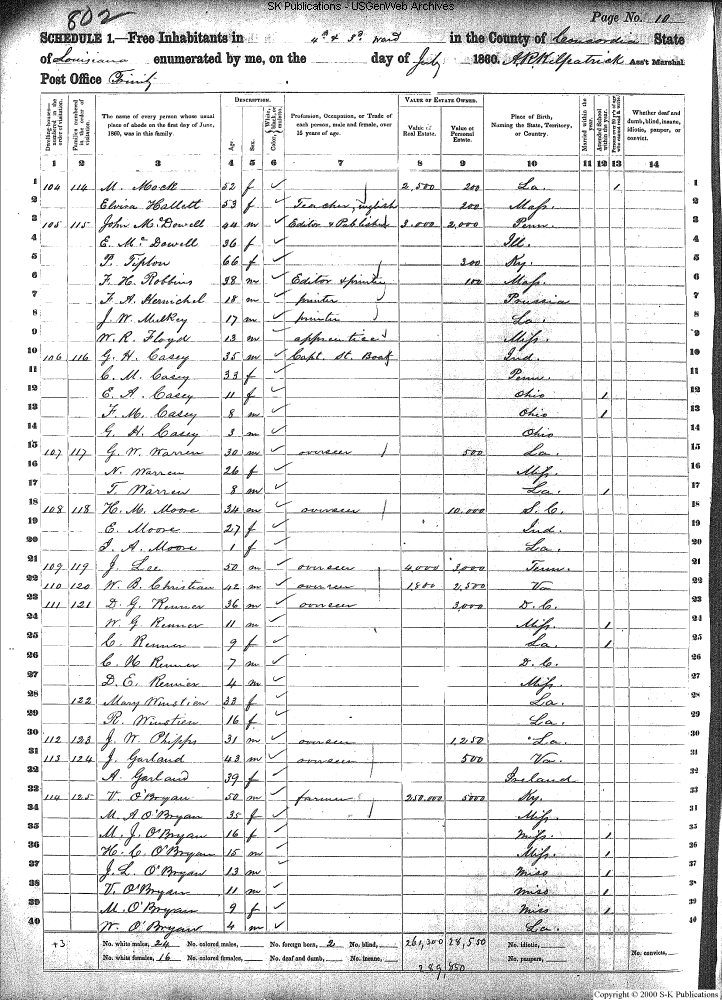 SK Publications - USGenWeb Archives
802
Page No. 10
SCHEDULE 1.—Free Inhabitants in 4th & 3d Ward in the County of Concordia State
of Louisiana enumerated by me, on the day of July 1860. A.R. Kilpatrick Ass't Marshal
Post Office Trinity
DESCRIPTION. VALUE OF ESTATE OWNED.
Dwelling-houses—numbered in the order of visitation. Families numbered in the order of visitation. The name of every person whose usual place of abode on the first day of June, 1860, was in this family. Age Sex Color, White, black, or mulatto. Profession, Occupation, or Trade of each person, male and female, over 15 years of age. Value of Real Estate. Value of Personal Estate. Place of Birth, Naming the State, Territory, or Country. Married within the year. Attended School within the year. Persons over 20 y'rs of age who cannot read & write. Whether deaf and dumb, blind, insane, idiotic, pauper, or convict.
1 2 3 4 5 6 7 8 9 10 11 12 13 14
1 104 114 M. Mock 52 f ✓ 2,500 200 La. 1 1
2 Elvira Hallett 53 f ✓ Teacher, english 200 Mass. 2
3 105 115 John McDowell 44 m ✓ Editor & Publisher 3.000 2,000 Penn. 3
4 E. McDowell 36 f ✓ Ill. 4
5 P. Tipton 66 f ✓ 300 Ky. 5
6 F. H. Robbins 38 m ✓ Editor & printer 100 Mass. 6
7 F. A. Hernichel 18 m ✓ printer Prussia 7
8 J. W. Mulkey 17 m ✓ printer La. 8
9 W. R. Floyd 13 m ✓ apprentice Miss. 9
10 106 116 G. H. Casey 35 m ✓ Capt. St. Boat Ind. 10
11 C. M. Casey 33 f ✓ Penn. 11
12 E. A. Casey 11 f ✓ Ohio 1 12
13 F. M. Casey 8 m ✓ Ohio 1 13
14 G. H. Casey 3 m ✓ Ohio 14
15 107 117 G. W. Warren 30 m ✓ overseer 500 La. 15
16 N. Warren 26 f ✓ Miss. 16
17 T. Warren 8 m ✓ La. 1 17
18 108 118 H. M. Moore 34 m ✓ overseer 10,000 S. C. 18
19 E. Moore 27 f ✓ Ind. 19
20 I. A. Moore 1 f ✓ La. 20
21 109 119 J. Lee 50 m ✓ overseer 4,000 3,000 Tenn. 21
22 110 120 W. B. Christian 42 m ✓ overseer 1,800 2,500 Va 22
23 111 121 D. G. Renner 36 m ✓ overseer 3,000 D. C. 23
24 W. G. Renner 11 m ✓ Miss. 1 24
25 C. Renner 9 f ✓ La 1 25
26 C. H. Renner 7 m ✓ D. C. 26
27 D. E. Renner 4 m ✓ Miss. 27
28 122 Mary Winstien 33 f ✓ La. 28
29 R. Winstien 16 f ✓ La. 29
30 112 123 J. W. Phipps 31 m ✓ overseer 1,250 La. 30
31 113 124 J. Garland 43 m ✓ overseer 500 Va. 31
32 A. Garland 39 f ✓ Ireland 32
33 114 125 V. O'Bryan 50 m ✓ farmer 250,000 5000 Ky. 33
34 M. A O'Bryan 35 f ✓ Miss. 34
35 M. J. O'Bryan 16 f ✓ Miss. 1 35
36 H. C. O'Bryan 15 m ✓ Miss. 1 36
37 J. L. O'Bryan 13 m ✓ Miss 1 37
38 V. O'Bryan 11 m ✓ Miss 1 38
39 M. O'Bryan 9 f ✓ Miss 1 39
40 W. O'Bryan 4 m ✓ La. 40
+3 No. white males, 24 No. colored males, No. foreign born, 2 No. blind, 261,300 28,550 No. idiotic, No. convicts,
No. white females, 16 No. colored females, No. deaf and dumb, No. insane, No. paupers,
289,850
Copyright © 2000 S-K Publications